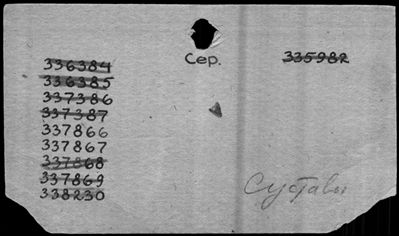 Сер.
335982
336384
336385
337386
337387
337866
337867
337868
337869
338230
Суставы